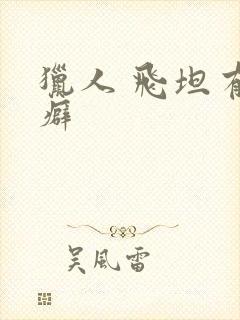 獵人 飛坦有
癖
吴風雷